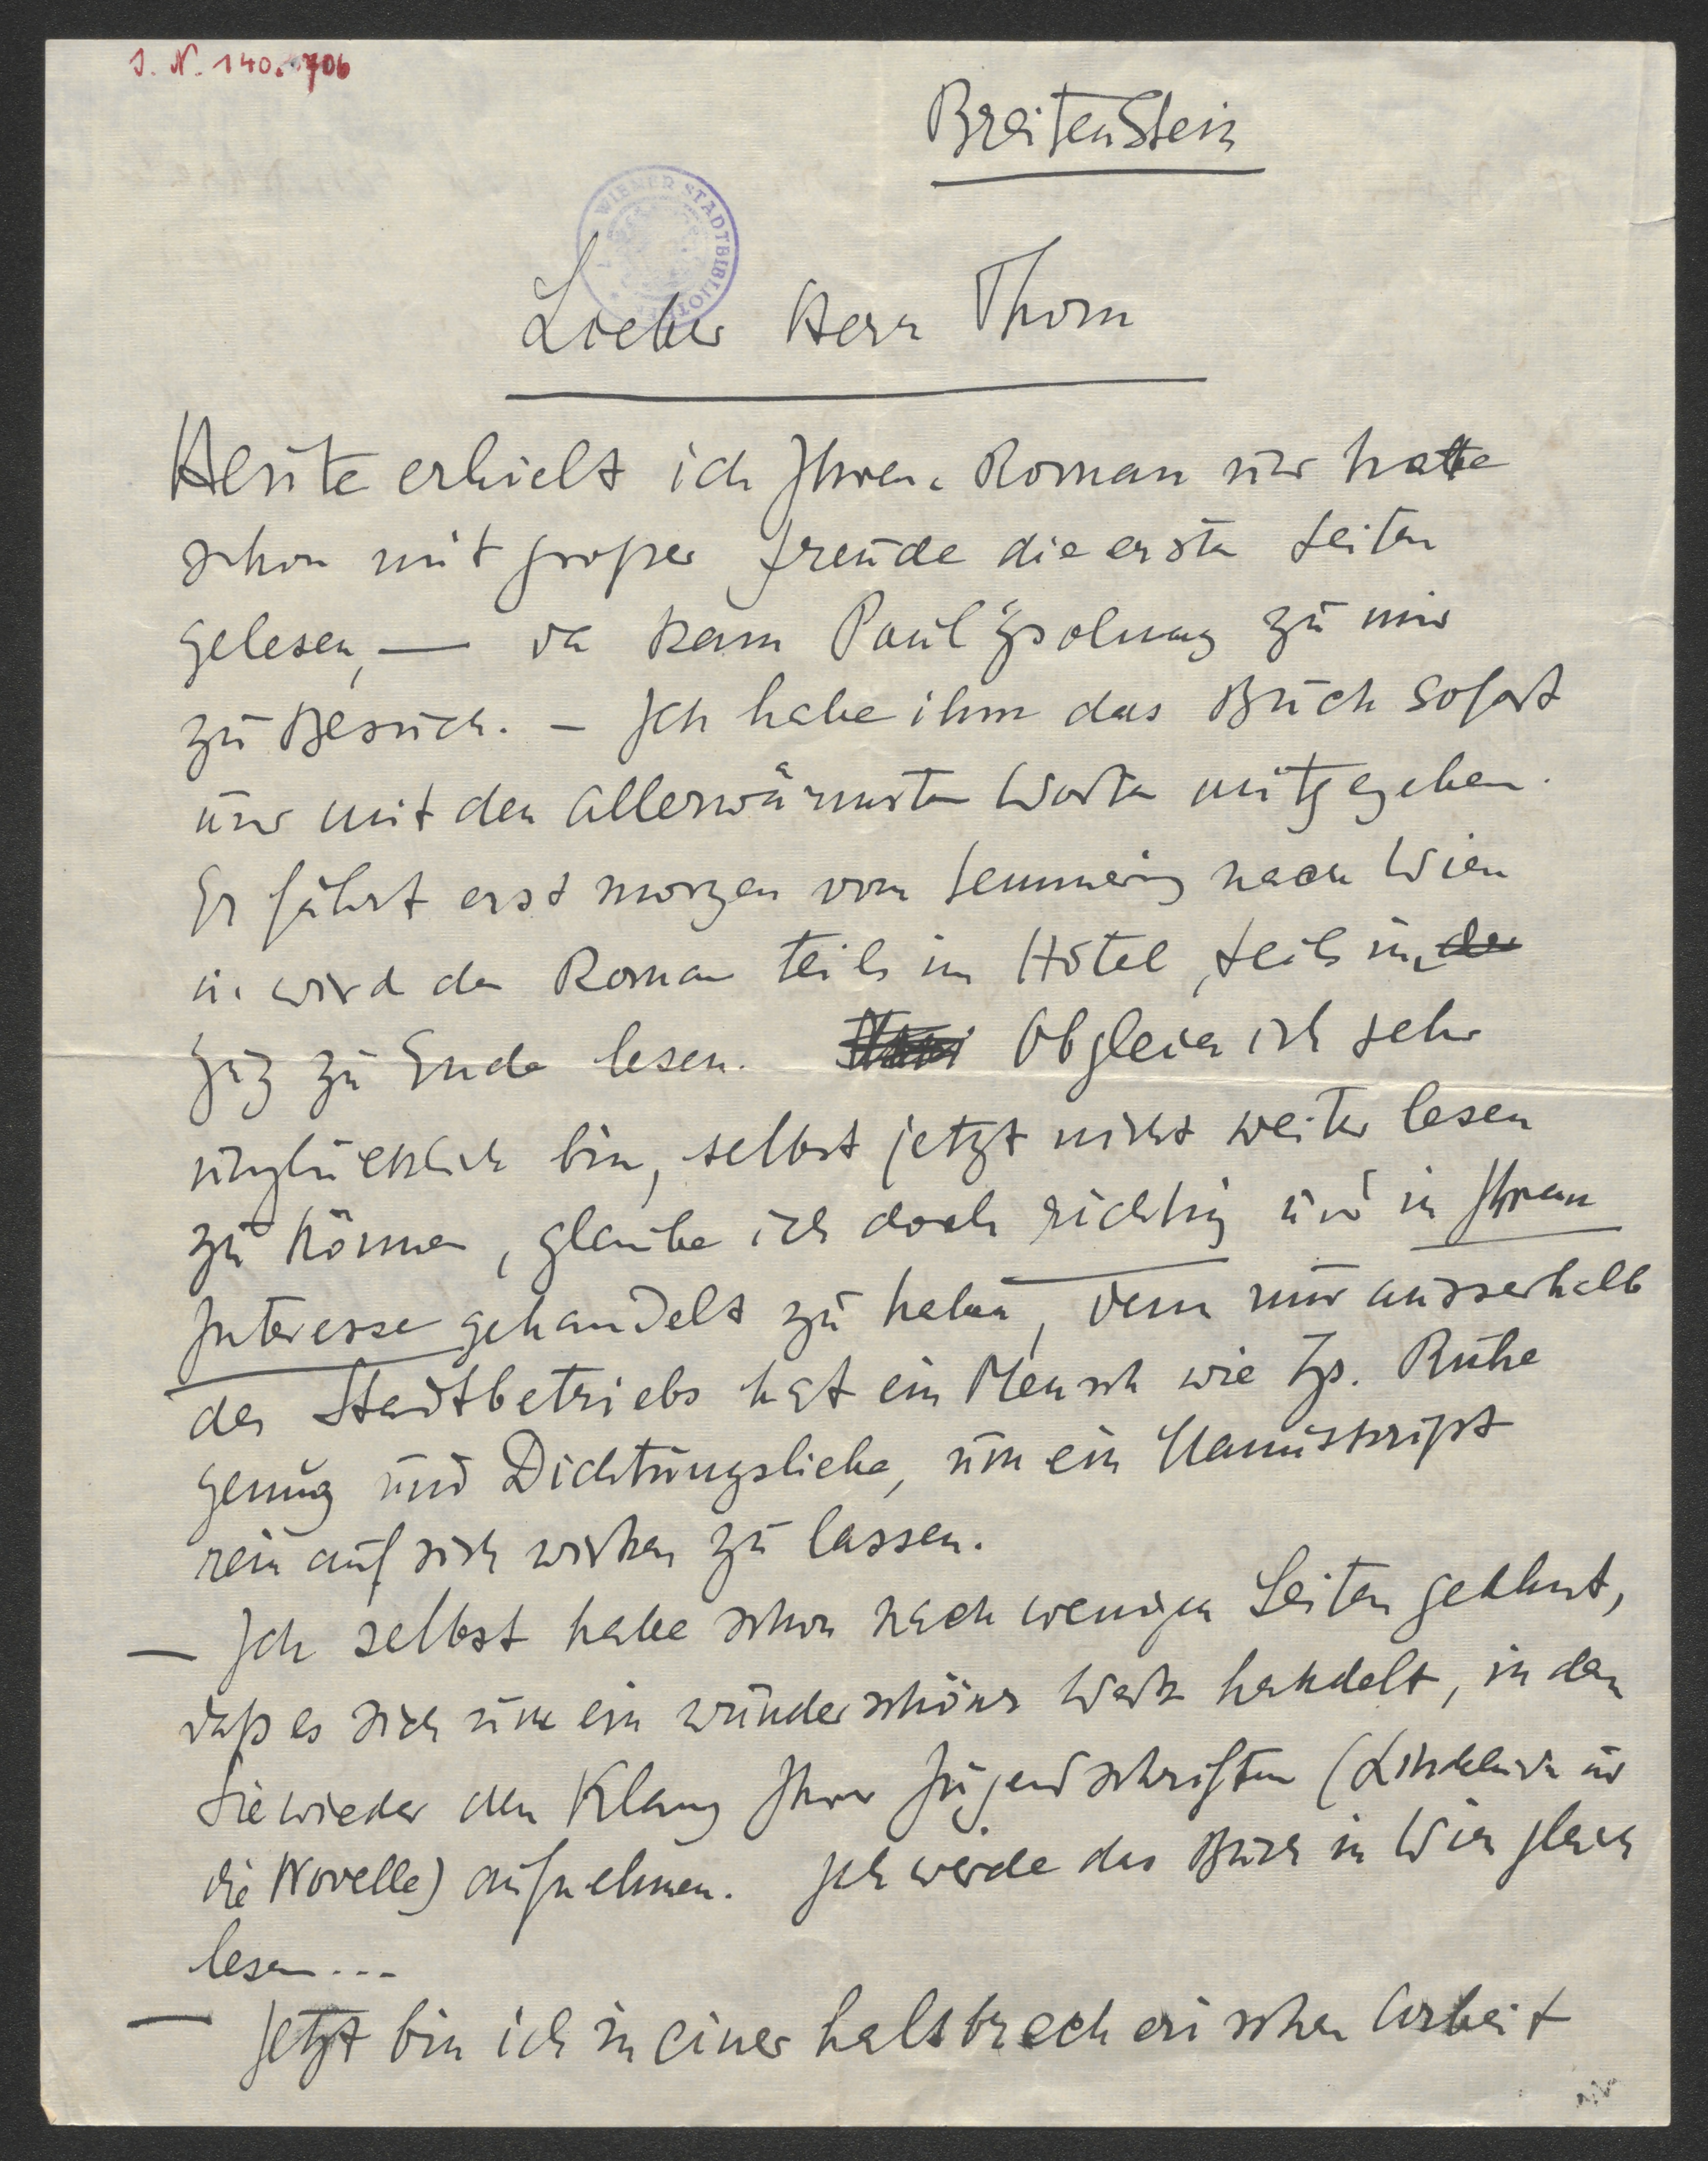 I. N. 140.706
Breitenstein
WIENER STADTBIBLIOTHEK
Lieber Herr Thom
Heute erhielt ich Ihren Roman und hatte
schon mit großer Freude die ersten Seiten
gelesen, — da kam Paul Zsolnay zu mir
zu Besuch. – Ich habe ihm das Buch sofort
und mit den allerwärmsten Worten mitgegeben.
Er fährt erst morgen vom Semmering nach Wien
u. wird den Roman teils im Hôtel, teils im der
Zug zu Ende lesen. Obgleich ich sehr
unglücklich bin, selbst jetzt nicht weiter lesen
zu können, glaube ich doch richtig und in Ihrem
Interesse gehandelt zu haben, denn nur ausserhalb
des Stadtbetriebs hat ein Mensch wie Zs. Ruhe
genug und Dichtungsliebe, um ein Manuskript
rein auf sich wirken zu lassen.
— Ich selbst habe schon nach wenigen Seiten geahnt,
daß es sich um ein wunderschönes Werk handelt, in dem
Sie wieder den Klang Ihrer Jugendschriften ( und
die Novelle) aufnehmen. Ich werde das Buch in Wien gleich
lesen...
— Jetzt bin ich in einer halsbrecherischen Arbeit